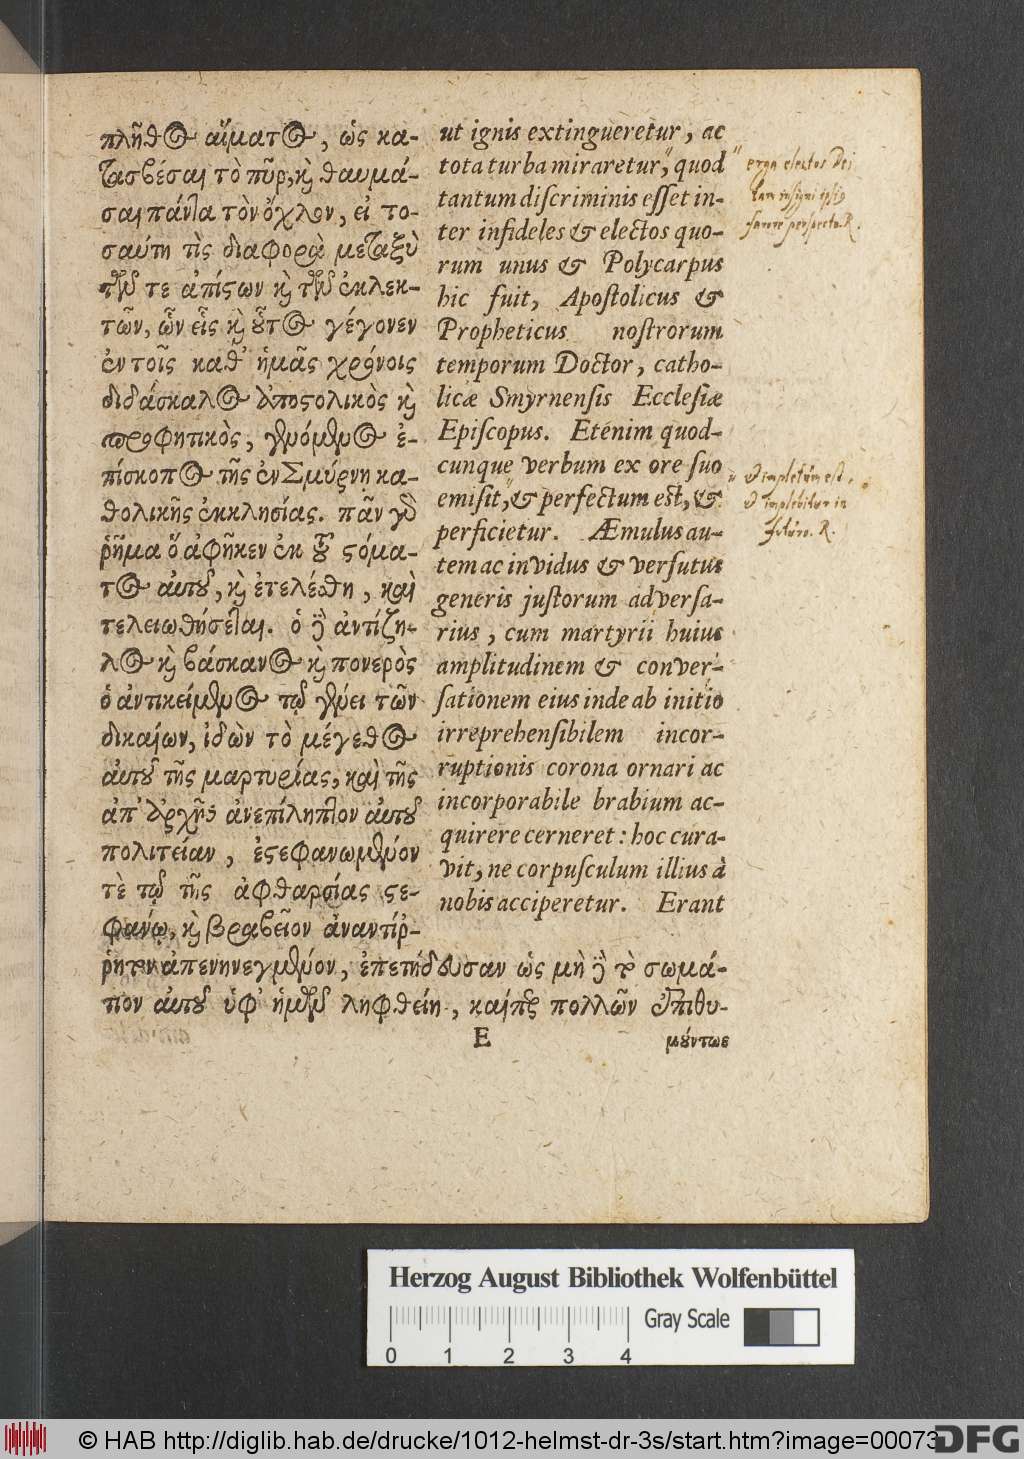 πλῆθος αἵματος, ὡς κα-
τασβέσαι τὸ πῦρ, κὶ θαυμά-
σαι πάντα τὸν ὄχλον, εἰ το-
σαύτη τὶς διαφορὰ μεταξὺ
τῶν τε ἀπίστων κὶ τῶν ἐκλεκ-
τῶν, ὧν εἷς κὶ οὗτος γέγονεν
ἐν τοῖς καθ' ἡμᾶς χρόνοις
διδάσκαλος ἀποστολικὸς κὶ
προφητικὸς, γενόμενος ἐ-
πίσκοπος τῆς ἐν Σμύρνῃ κα-
θολικῆς ἐκκλησίας. πᾶν γὸ
ῥῆμα ὅ ἀφῆκεν ἐκ τοῦ στόμα-
τος αὐτοῦ, κὶ ἐτελέσθη, καὶ
τελειωθήσεται. ὁ δὲ ἀντίζη-
λος κὶ βάσκανος κὶ πονερὸς
ὁ ἀντικείμενος τῷ γένει τῶν
δικαίων, ἰδὼν τὸ μέγεθος
αὐτοῦ τῆς μαρτυρίας, καὶ τῆς
ἀπ' ἀρχῆς ἀνεπίληπτον αὐτοῦ
πολιτείαν, ἐστεφανωμένον
τὲ τῷ τῆς ἀφθαρσίας στε-
φάνῳ, κὶ βραβεῖον ἀναντίρ-
ῥητον ἀπενηνεγμένον, ἐπετήδευσαν ὡς μὴ δὲ τὸ σωμά-
τιον αὐτοῦ ὑφ' ἡμῶν ληφθείη, καίπερ πολλῶν ἐπιθυ-
ut ignis extingueretur, ac
tota turba miraretur, " quod
tantum discriminis esset in-
ter infideles & electos quo-
rum unus & Polycarpus
hic fuit, Apostolicus &
Propheticus nostrorum
temporum Doctor, catho-
licæ Smyrnensis Ecclesiæ
Episcopus. Etenim quod-
cunque verbum ex ore suo
emisit, " & perfectum est, &
perficietur. Æmulus au-
tem ac invidus & versutus
generis justorum adversa-
rius, cum martyrii huius
amplitudinem & conver-
sationem eius inde ab initio
irreprehensibilem incor-
ruptionis corona ornari ac
incorporabile brabium ac-
quirere cerneret: hoc cura-
vit, ne corpusculum illius à
nobis acciperetur. Erant
E
μούντων
" erga electos Dei
tam insigni
favore R.
" & impletum est,
& implebitur in
futuro. R.
Herzog August Bibliothek Wolfenbüttel
0 1 2 3 4
Gray Scale
© HAB http://diglib.hab.de/drucke/1012-helmst-dr-3s/start.htm?image=00073
DFG